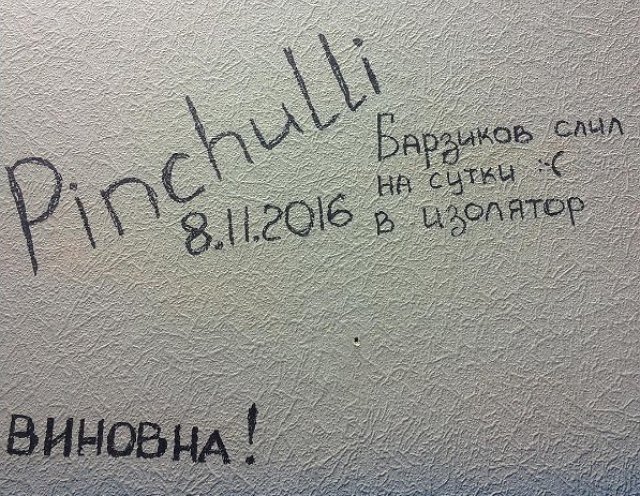 Pinchulli
8.11.2016
Барзиков слил
на сутки :-(
в изолятор
ВИНОВНА!